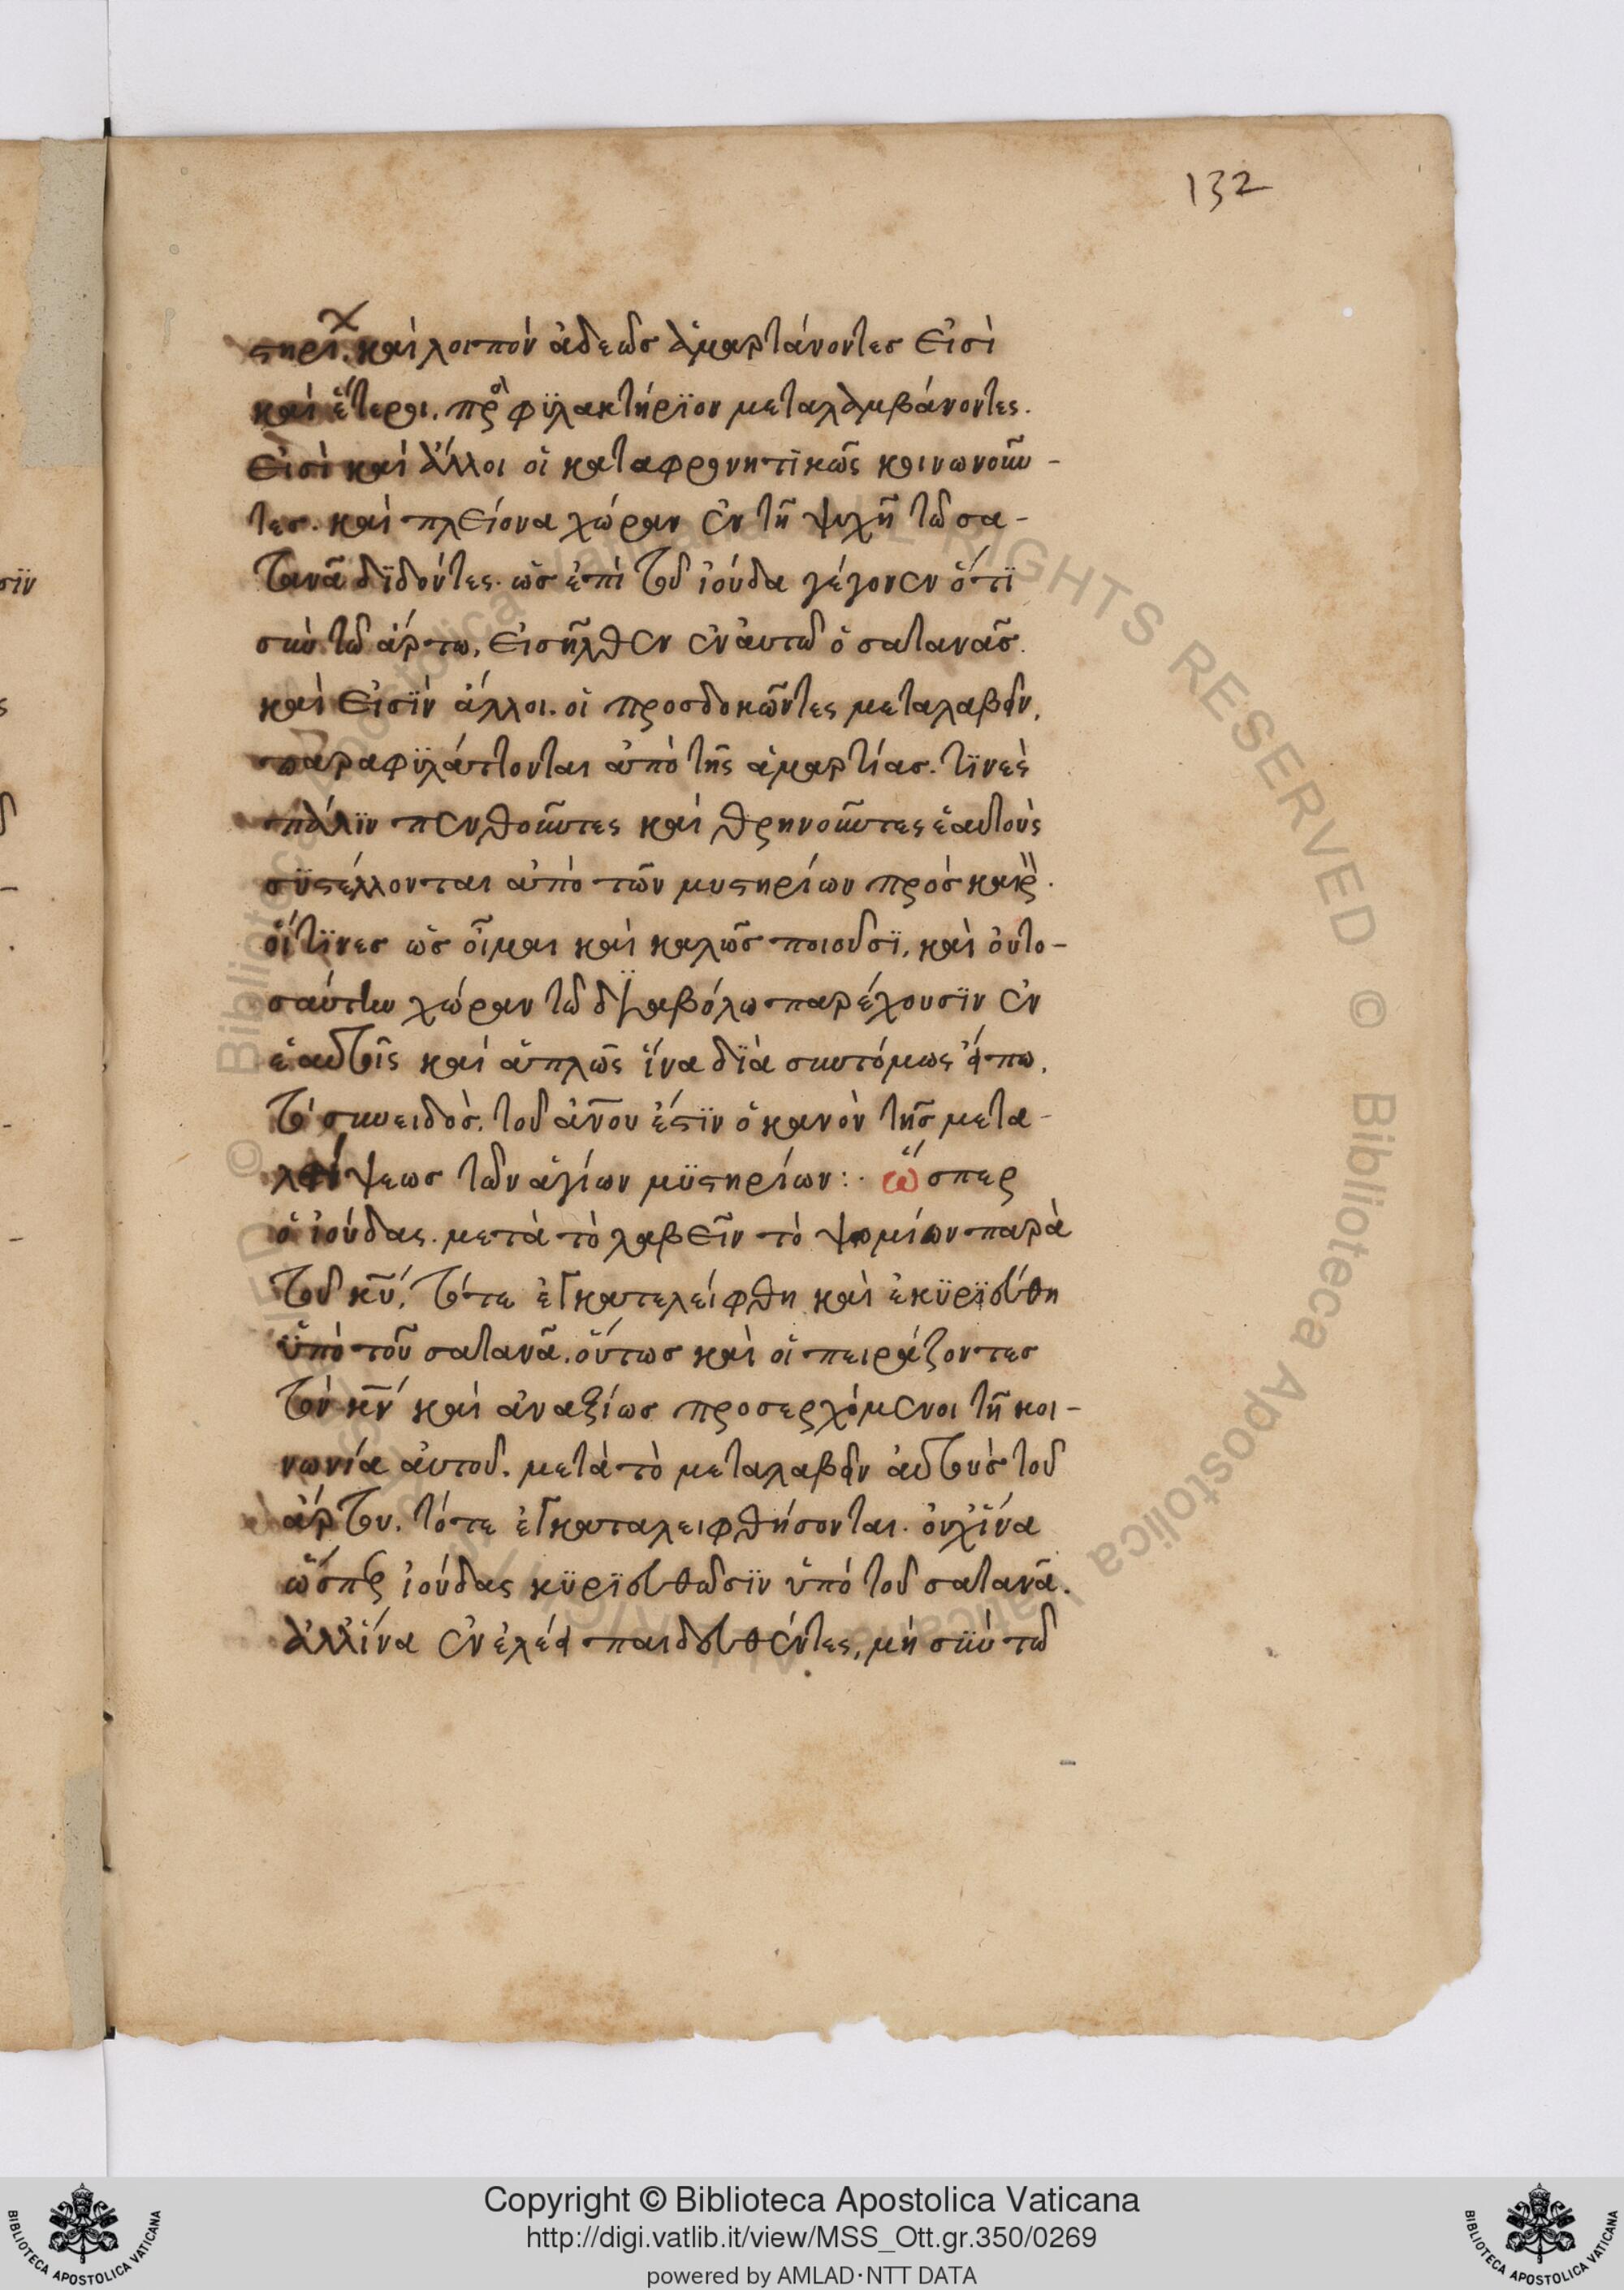 132
στηρί. καὶ λοιπὸν ἀδεῶς ἁμαρτάνοντες εἰσὶ
καὶ ἕτεροι. πρὸς φϋλακτήρϊον μεταλαμβάνοντες.
εἰσὶ καὶ ἄλλοι οἱ καταφρονητϊκῶς κοινωνοῦν-
τες. καὶ πλείονα χώραν ἐν τῆ ψυχῆ τῶ σα-
τανᾶ δϊδόντες. ὡς ἐπὶ τοῦ ἰούδα γέγονεν ὅτϊ
σὺν τῶ ἄρτω, εἰσῆλθεν ἐν ἀυτῶ ὁ σατανᾶς.
καὶ εἰσϊν ἄλλοι. οἱ προσδοκῶντες μεταλαβεῖν,
παραφϋλάττονται ἀπὸ τῆς ἁμαρτίας. τϊνὲς
πάλϊν πενθοῦντες καὶ θρηνοῦντες ἑαυτοὺς
σϋστέλλονται ἀπὸ τῶν μυστηρίων πρὸς καιρ.
οἵτϊνες ὡς οἶμαι καὶ καλῶς ποιοῦσϊ, καὶ οὐ το-
σαύτην χώραν τῶ δϊαβόλω παρέχουσϊν ἐν
ἑαυτοῖς καὶ ἁπλῶς ἵνα δϊὰ συντόμως εἴπω,
τὸ συνειδὸς. τοῦ ἀνου ἐστϊν ὁ κανὸν τῆς μετα-
λήψεως τῶν ἁγίων μϋστηρίων:· ὥσπερ
ὁ ἰούδας. μετὰ τὸ λαβεῖν τὸ ψομίον παρὰ
τοῦ κυ, τότε ἐγκατελείφθη καὶ ἐκϋρϊεύθη
ὑπὸ τοῦ σατανᾶ. οὕτως καὶ οἱ πειράζοντες
τὸν κν καὶ ἀναξίως προσερχόμενοι τῆ κοι-
νωνία ἀυτοῦ. μετὰ τὸ μεταλαβεῖν ἀυτοὺς τοῦ
ἄρτου. τότε ἐγκαταλειφθήσονται. οὐχ ἵνα
ὥσπερ ἰούδας κϋρϊευθῶσϊν ὑπὸ τοῦ σατανᾶ.
ἀλλ ἵνα ἐν ἐλέει παιδευθέντες, μὴ σϋν τῶ
© Biblioteca Apostolica Vaticana ALL RIGHTS RESERVED © Biblioteca Apostolica Vaticana
BIBLIOTECA APOSTOLICA VATICANA
Copyright © Biblioteca Apostolica Vaticana
http://digi.vatlib.it/view/MSS_Ott.gr.350/0269
powered by AMLAD·NTT DATA
BIBLIOTECA APOSTOLICA VATICANA